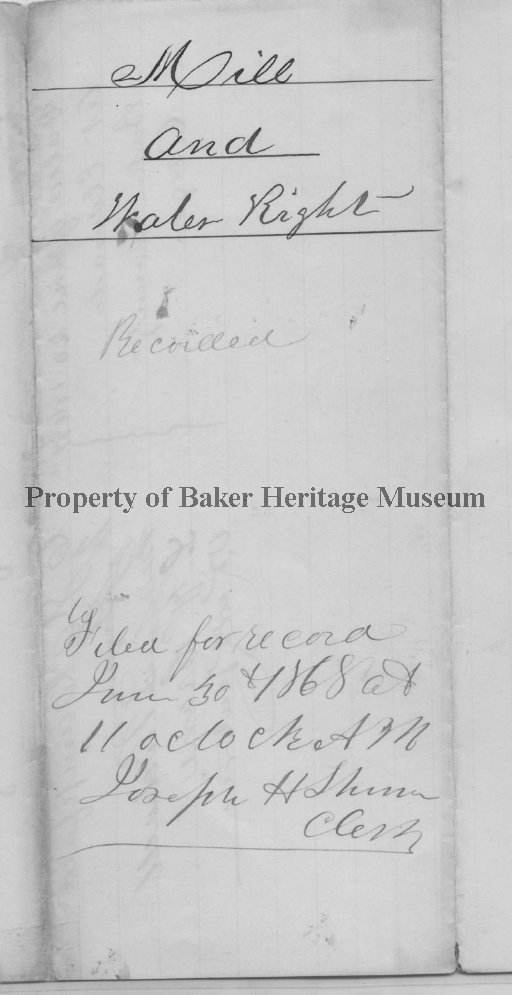 Mill
and
Water Right
Recorded
Property of Baker Heritage Museum
Filed for record
June 30th 1868 at
11 oclock A M
Joseph H Shinn
Clerk